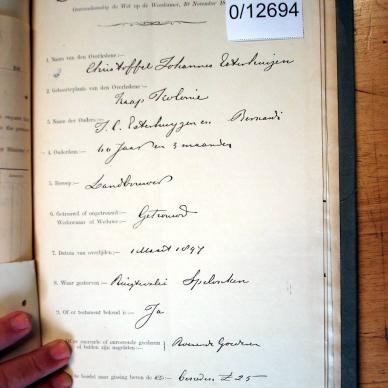 0/12694
Overeenkomstig de Wet op de Weeskamer, 10 November 18
1. Naam van den Overledene:— Christoffel Johannes Esterhuizen
2. Geboorteplaats van den Overledene:— Kaap Kolonie
3. Name der Ouders:— J. C. Esterhuyzen en
4. Ouderdom:— 60 Jaar en 3 maanden
5. Beroep:— Landbouwer
6. Getrouwd of ongetrouwd:— Getrouwd
Weduwenaar of Weduwe:—
7. Datum van overlijden:— 1 Maart 1897
8. Waar gestorven:— Spelonken
9. Of er testament bekend is:— Ja
Of er roerende of onroerende goederen Roerende Goederen
of beiden zijn nagelaten:—
boedel naar gissing boven de £25:— beneden £25